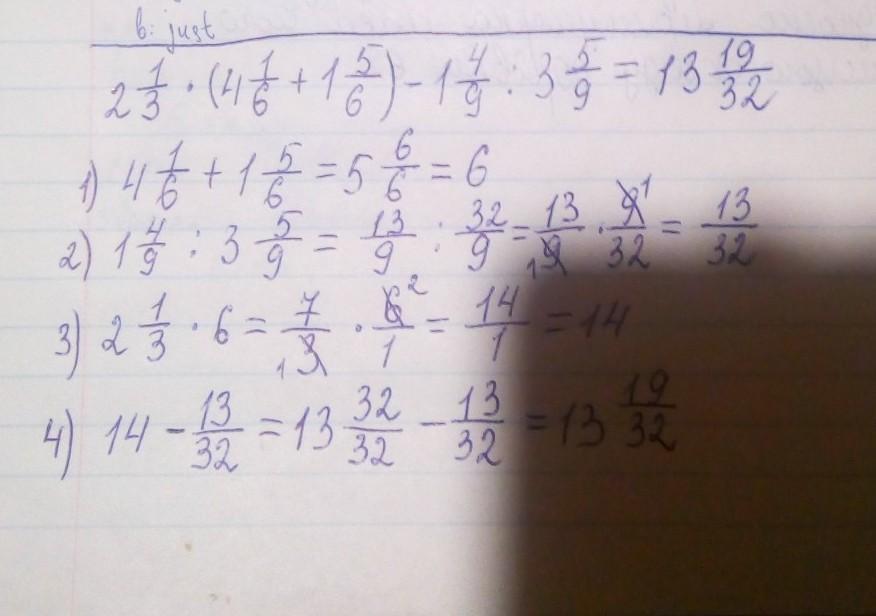 b: just
2 1/3 · (4 1/6 + 1 5/6) - 1 4/9 : 3 5/9 = 13 19/32
1) 4 1/6 + 1 5/6 = 5 6/6 = 6
2) 1 4/9 : 3 5/9 = 13/9 : 32/9 = 13/9 1 · 9 1/32 = 13/32
3) 2 1/3 · 6 = 7/3 1 · 6 2/1 = 14/1 = 14
4) 14 - 13/32 = 13 32/32 - 13/32 = 13 19/32